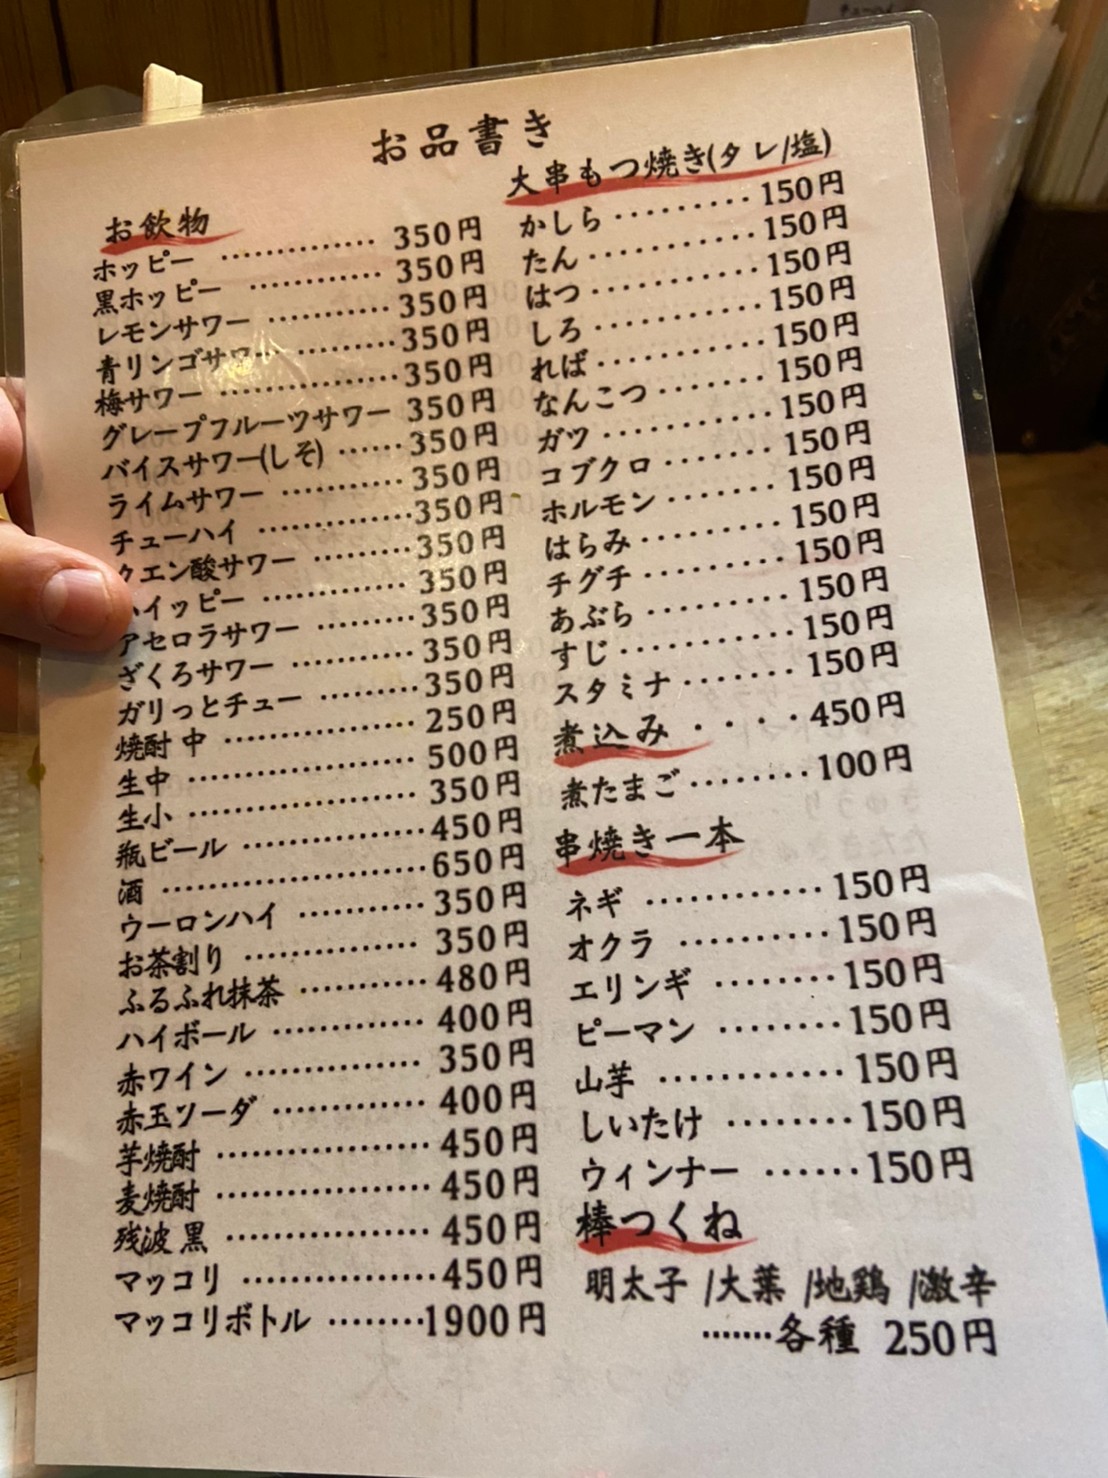 お品書き
お飲物
ホッピー ………… 350円
黒ホッピー ………… 350円
レモンサワー ………… 350円
青リンゴサワー ………… 350円
梅サワー ………… 350円
グレープフルーツサワー 350円
バイスサワー(しそ) …… 350円
ライムサワー ………… 350円
チューハイ ………… 350円
クエン酸サワー ……… 350円
ハイッピー ………… 350円
アセロラサワー ……… 350円
ざくろサワー ………… 350円
ガリっとチュー ……… 350円
焼酎 中 ………… 250円
生中 ………… 500円
生小 ………… 350円
瓶ビール ………… 450円
酒 ………… 650円
ウーロンハイ ………… 350円
お茶割り ………… 350円
ふるふれ抹茶 ………… 480円
ハイボール ………… 400円
赤ワイン ………… 350円
赤玉ソーダ ………… 400円
芋焼酎 ………… 450円
麦焼酎 ………… 450円
残波 黒 ………… 450円
マッコリ ………… 450円
マッコリボトル ……… 1900円
大串もつ焼き(タレ/塩)
かしら ……… 150円
たん ………… 150円
はつ ………… 150円
しろ ………… 150円
れば ………… 150円
なんこつ ……… 150円
ガツ ………… 150円
コブクロ ……… 150円
ホルモン ……… 150円
はらみ ………… 150円
チグチ ………… 150円
あぶら ………… 150円
すじ ………… 150円
スタミナ ……… 150円
煮込み ・・・・ 450円
煮たまご ……… 100円
串焼き一本
ネギ ………… 150円
オクラ ………… 150円
エリンギ ……… 150円
ピーマン ……… 150円
山芋 ………… 150円
しいたけ ……… 150円
ウィンナー …… 150円
棒つくね
明太子 /大葉 /地鶏 /激辛
……各種 250円